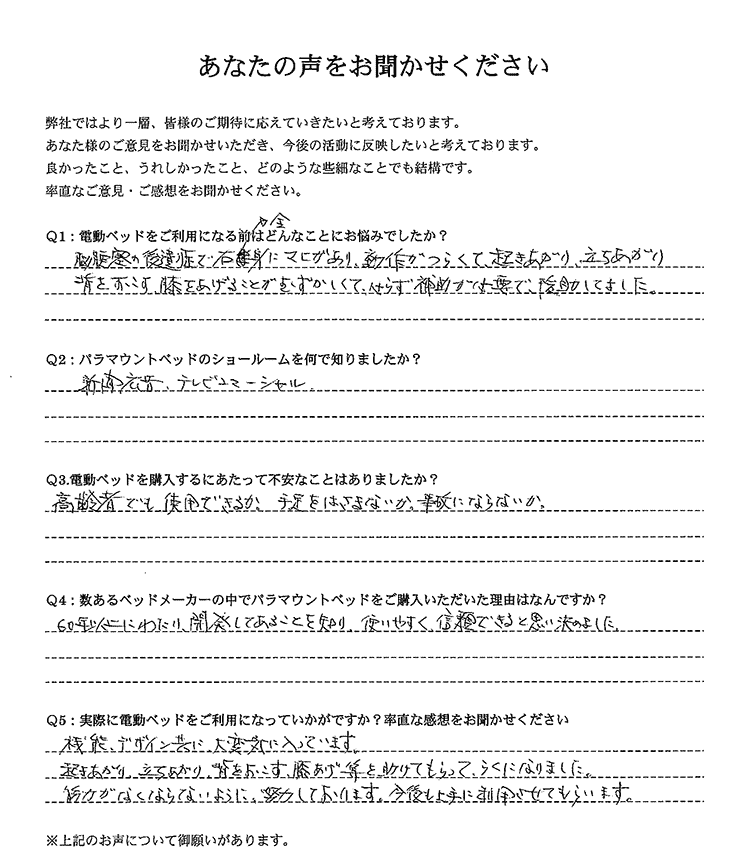 あなたの声をお聞かせください
弊社ではより一層、皆様のご期待に応えていきたいと考えております。
あなた様のご意見をお聞かせいただき、今後の活動に反映したいと考えております。
良かったこと、うれしかったこと、どのような些細なことでも結構です。
率直なご意見・ご感想をお聞かせください。
Q1：電動ベッドをご利用になる前はどんなことにお悩みでしたか？
脳脳塞の後遺症で右半身にマヒがあり、動作がつらくて、起きあがり、立ちあがり
背を起こす、膝をあげることがむずかしくて、必らず補助が必要で、援助してました。
Q2：パラマウントベッドのショールームを何で知りましたか？
新聞広告、テレビコマーシャル、
Q3.電動ベッドを購入するにあたって不安なことはありましたか？
高齢者でも使用できるか、手足をはさまないか、華奢にならないか。
Q4：数あるベッドメーカーの中でパラマウントベッドをご購入いただいた理由はなんですか？
60年以上にわたり、開発してあることを知り、使いやすく、信頼できると思い決めました。
Q5：実際に電動ベッドをご利用になっていかがですか？率直な感想をお聞かせください
機能、デザイン共に、大変気に入っています。
起きあがり、立ちあがり、背をおこす、膝あげ等と助けてもらって、らくになりました。
筋力がなくならないように、努力しております。今後も上手に利用させてもらいます。
※上記のお声について御願いがあります。